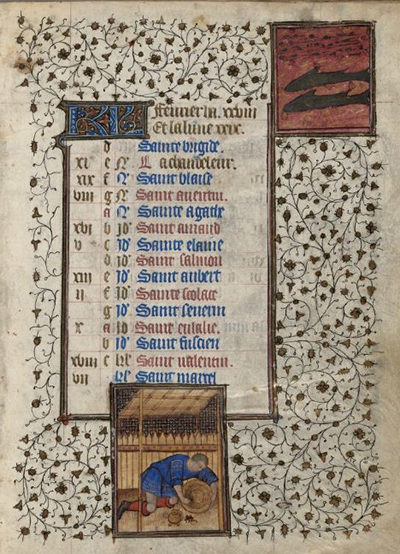 KL feurier ha. xxviii
Et la lune xxix.
d Sainte brigide.
xi e N La chandeleur.
xix f N Saint blaise
viii g N Saint auentin.
a N Sainte agathe
xvi b id Saint amand
v c id Sainte elaine
d id Saint salmon
xiii e id Saint aubert
ii f id Sainte scolace
g id Saint seuerin
x a id Sainte eulalie.
b id Saint fulcien
xviii c kl Saint valentin.
vii kl Saint marcel